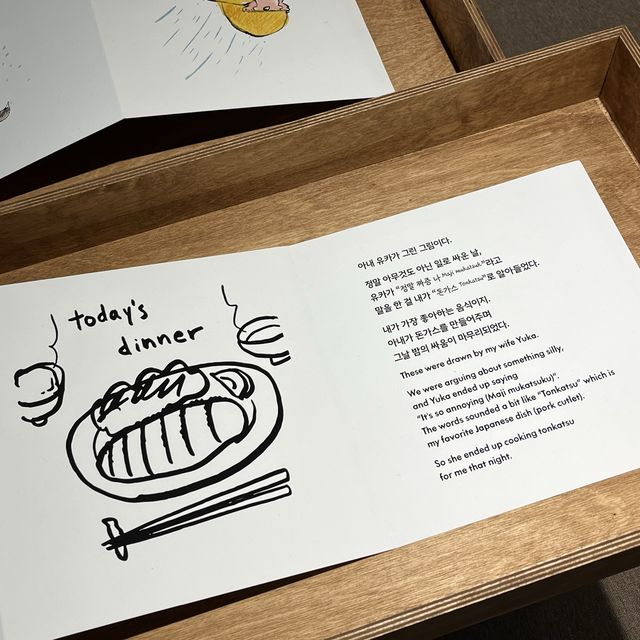 today's
dinner
아내 유카가 그린 그림이다.
정말 아무것도 아닌 일로 싸운 날,
유카가 “정말 짜증 나 Maji mukatsuk”라고
말을 한 걸 내가 “돈가스 Tonkatsu”로 알아들었다.
내가 가장 좋아하는 음식이지.
아내가 돈가스를 만들어주며
그날 밤의 싸움이 마무리되었다.
These were drawn by my wife Yuka.
We were arguing about something silly,
and Yuka ended up saying
“It's so annoying (Maji mukatsuku)”.
The words sounded a bit like “Tonkatsu” which is
my favorite Japanese dish (pork cutlet).
So she ended up cooking tonkatsu
for me that night.